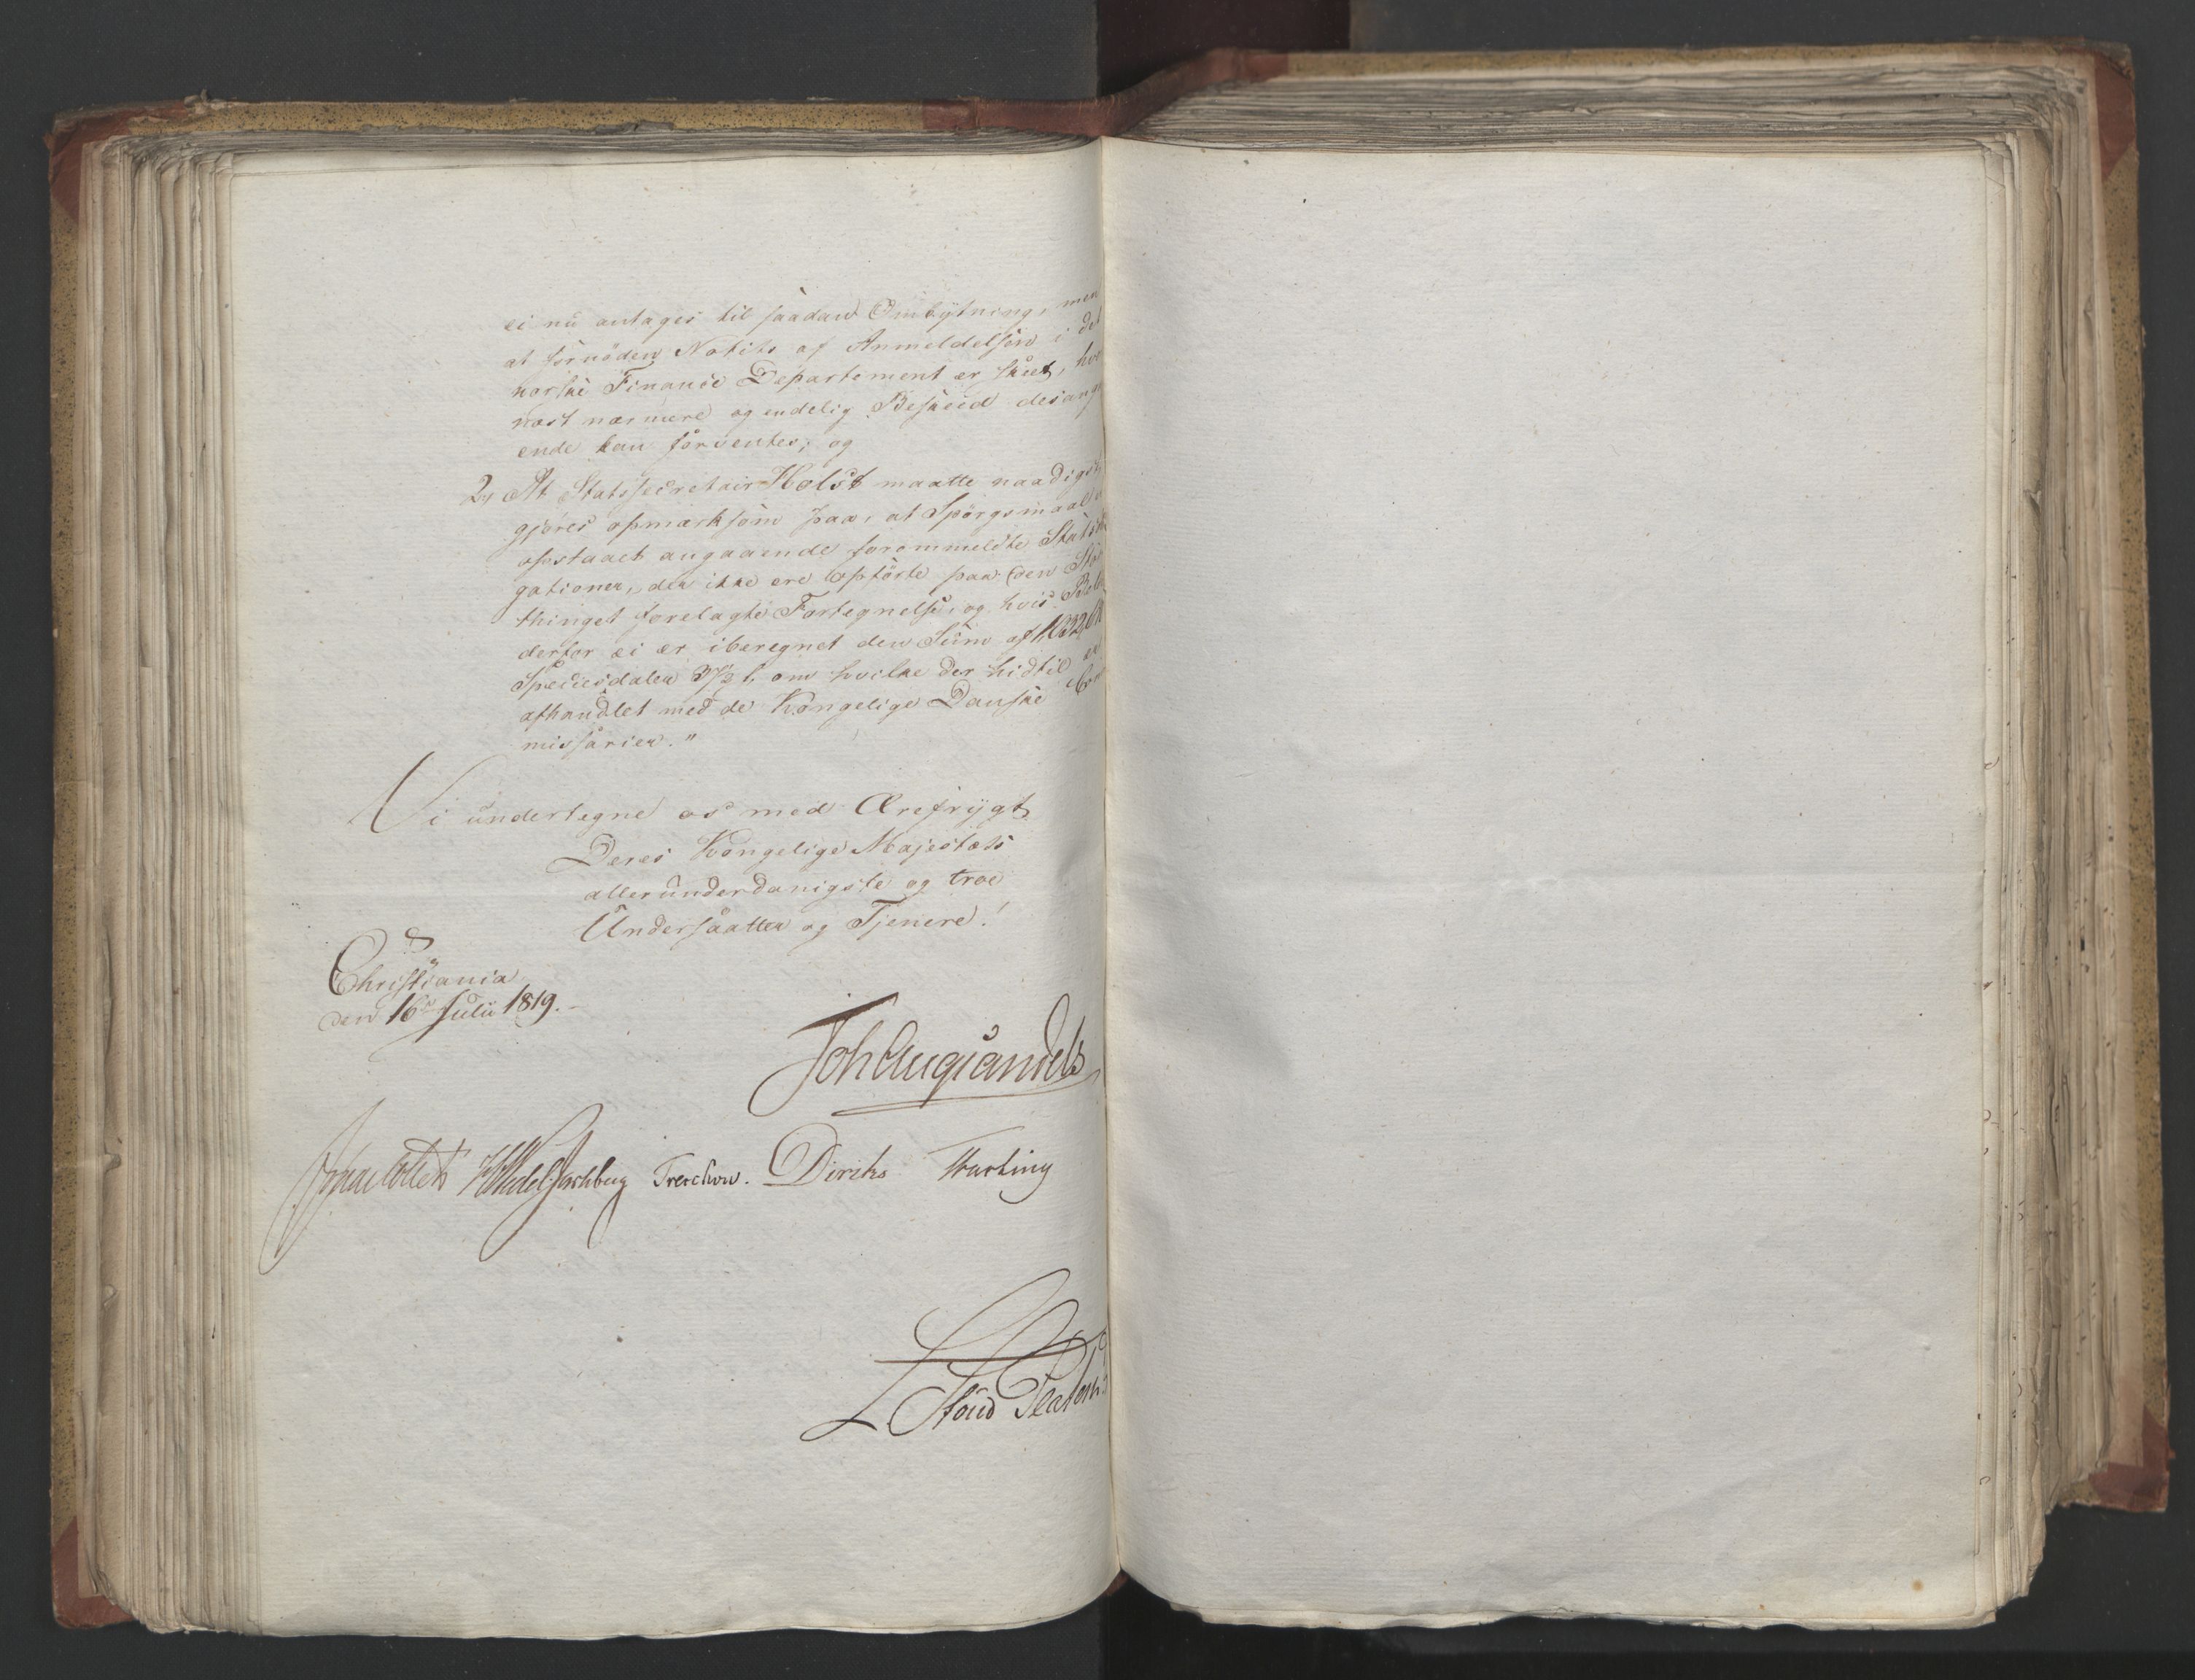 ei nu antages til saadan Ombytning, men
at fornöden Notits af Anmeldelsen i det
norske Finance Departement er skeet, hvor
næst nærmere og endelig Beskeed desang
ende kan forventes; og
2, At Statssecretair Holst maatte naadigst
gjöres opmærksom paa, at Spörgsmaal er
opstaaet angaaende forommeldte Stats
gationer, der ikke ere opförte paa den Stor
thinget forelagte Fortegnelse, og hvis Belöb
derfor ei er iberegnet den Sum af
Speciesdaler om hvilke der hidtil er
afhandlet med de Kongelige Danske Com
missarier."
Vi undertegne os med Ærefrygt
Deres Kongelige Majestæts
allerunderdanigste og troe
Undersaatter og Tjenere!
Christiania
den 16d Julii 1819.
Joh Aug Sandels
Jonas Collett HWedelJarlsberg Treschow. Diriks Fasting
L. Stoud Platou